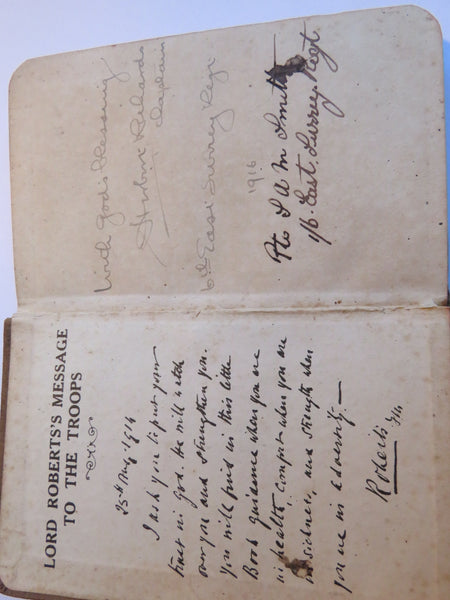 LORD ROBERTS'S MESSAGE
TO THE TROOPS
25th Aug 1914
I ask you to put your
trust in God. He will watch
over you and strengthen you.
You will find in this little
Book guidance when you are
in health, comfort when you are
in sickness, and strength when
you are in adversity.—
Roberts F.M.
With God's blessing
Herbert Richards
Chaplain
6th East Surrey Regt
1916
Pte S A M Smith
1/6 East. Surrey. Regt.